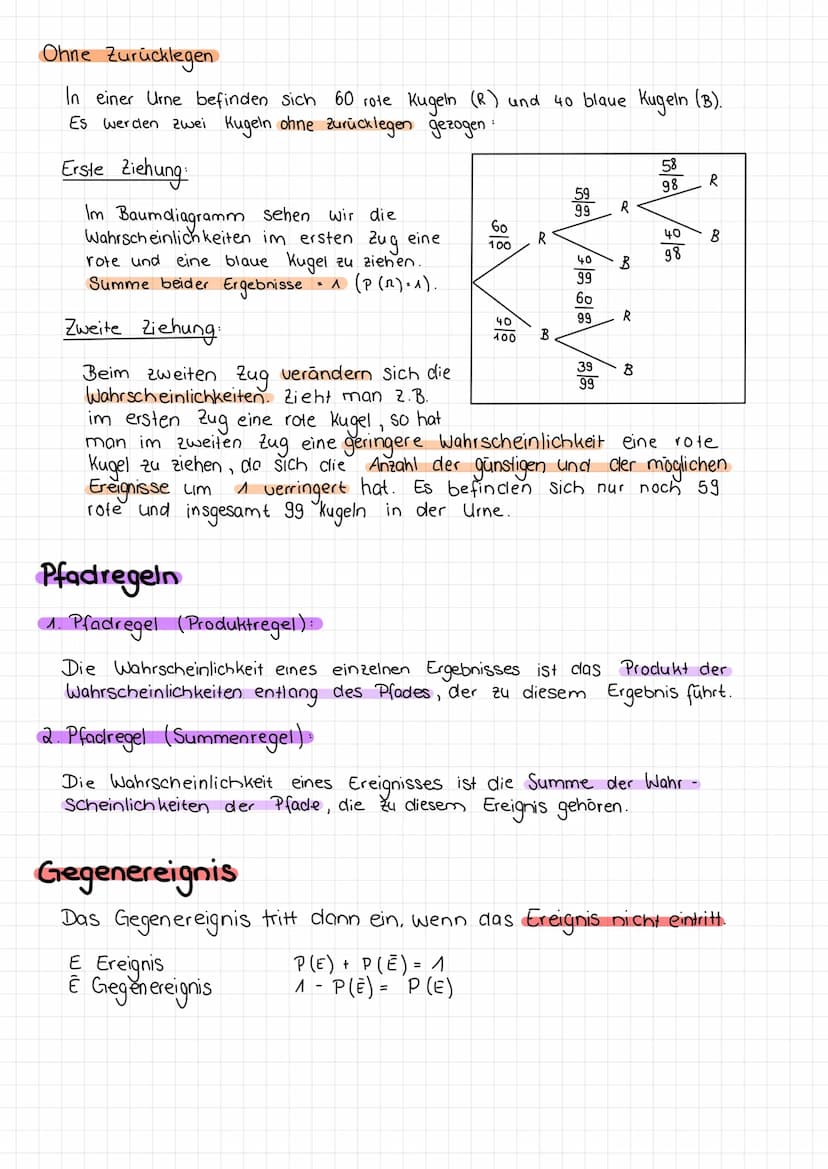 Ohne Zurücklegen
In einer Urne befinden sich 60 rote Kugeln (R) und 40 blaue Kugeln (B).
Es werden zwei Kugeln ohne zurücklegen gezogen:
Erste Ziehung:
Im Baumdiagramm sehen wir die
Wahrscheinlichkeiten im ersten Zug eine
rote und eine blaue Kugel zu ziehen.
Summe beider Ergebnisse = 1 (P(Ω)=1).
Zweite Ziehung:
Beim zweiten Zug verändern sich die
Wahrscheinlichkeiten. Zieht man z.B.
im ersten Zug eine rote Kugel, so hat
man im zweiten Zug eine geringere Wahrscheinlichkeit eine rote
Kugel zu ziehen, da sich die Anzahl der günstigen und der möglichen
Ereignisse um 1 verringert hat. Es befinden sich nur noch 59
rote und insgesamt 99 Kugeln in der Urne.
60/100 R
59/99 R
58/98 R
40/98 B
40/99 B
40/100 B
60/99 R
39/99 B
Pfadregeln
1. Pfadregel (Produktregel):
Die Wahrscheinlichkeit eines einzelnen Ergebnisses ist das Produkt der
Wahrscheinlichkeiten entlang des Pfades, der zu diesem Ergebnis führt.
2. Pfadregel (Summenregel):
Die Wahrscheinlichkeit eines Ereignisses ist die Summe der Wahr-
scheinlichkeiten der Pfade, die zu diesem Ereignis gehören.
Gegenereignis
Das Gegenereignis tritt dann ein, wenn das Ereignis nicht eintritt.
E Ereignis P(E) + P(Ē) = 1
Ē Gegenereignis 1 - P(Ē) = P(E)